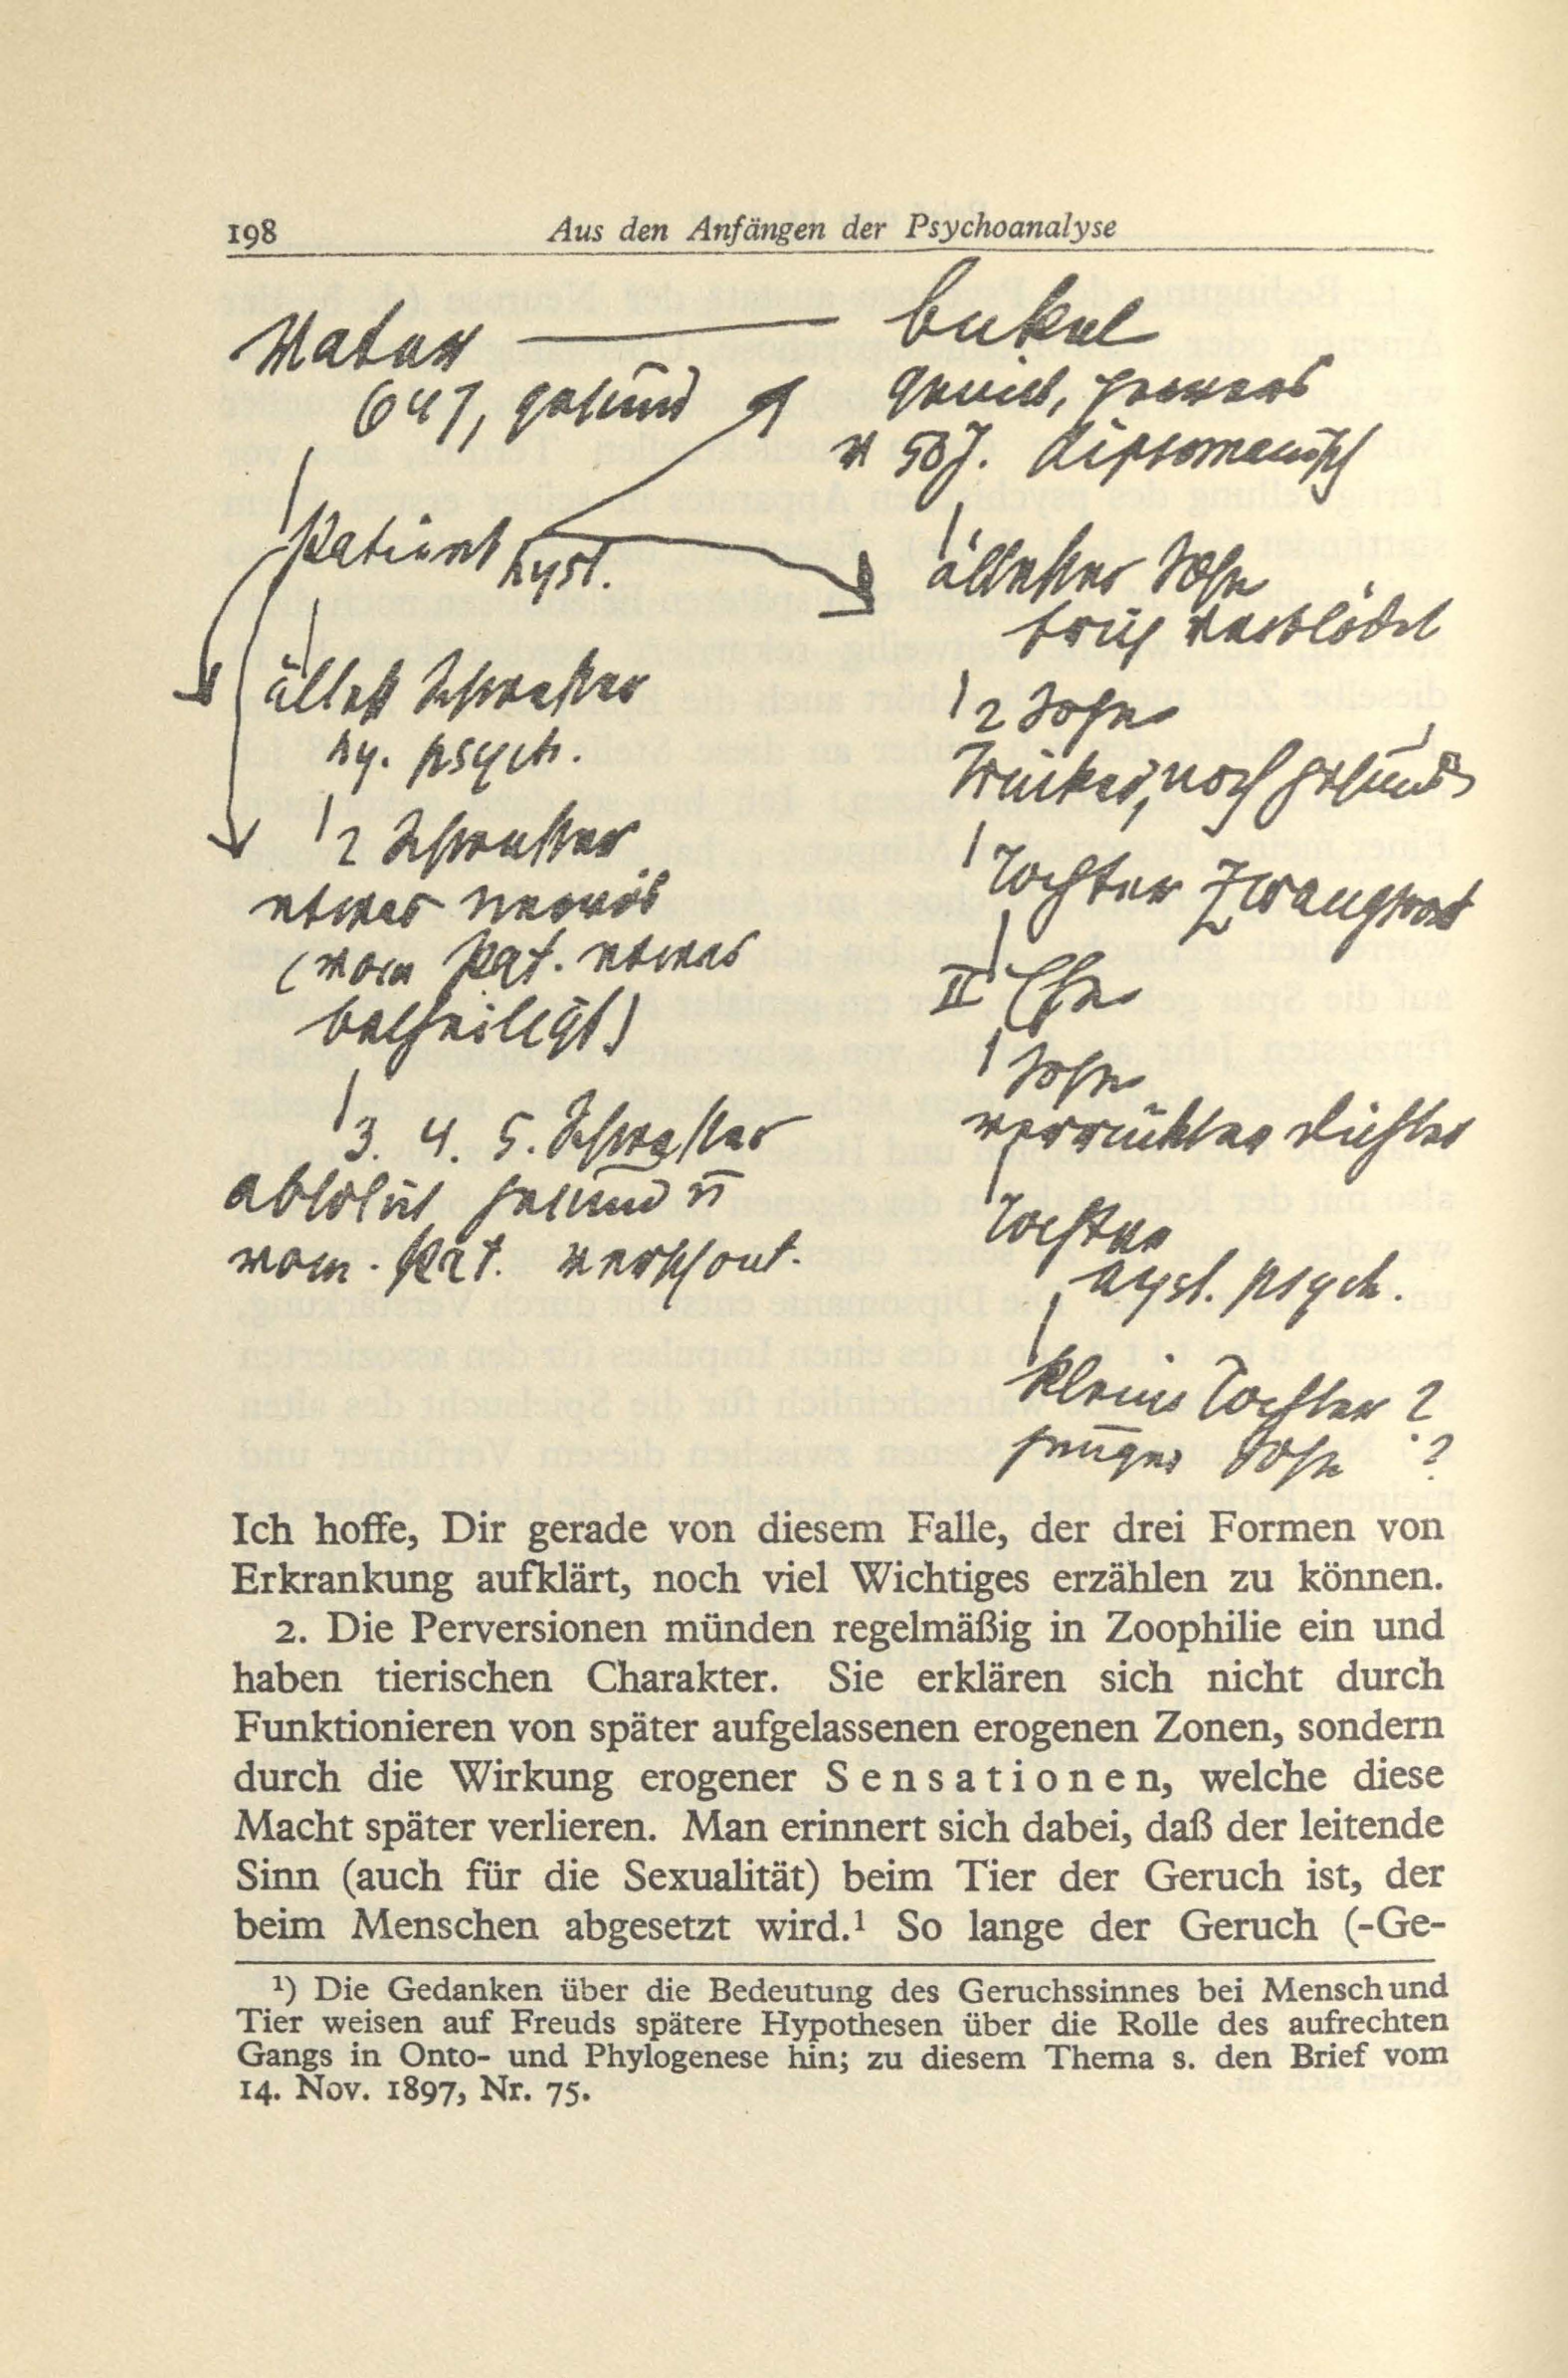 198 Aus den Anfängen der Psychoanalyse
Vater
64 J, gesund
Patient hyst.
ältest Schwester
hy. psych.
2 Schwester
etwas nervös
(vom Pat. etwas
betheiligt)
3. 4. 5. Schwester
absolut gesund u
vom Pat. verschont.
Onkel
genial, pervers
v 50 J. dipsomanisch
ältester Sohn
früh verblödet
2 Sohn
Trinker, noch gesund
Tochter
II Ehe
Sohn
verrückter Dichter
Tochter
hyst. psych.
kleine Tochter ?
junger Sohn ?
Ich hoffe, Dir gerade von diesem Falle, der drei Formen von
Erkrankung aufklärt, noch viel Wichtiges erzählen zu können.
2. Die Perversionen münden regelmäßig in Zoophilie ein und
haben tierischen Charakter. Sie erklären sich nicht durch
Funktionieren von später aufgelassenen erogenen Zonen, sondern
durch die Wirkung erogener Sensationen, welche diese
Macht später verlieren. Man erinnert sich dabei, daß der leitende
Sinn (auch für die Sexualität) beim Tier der Geruch ist, der
beim Menschen abgesetzt wird.¹ So lange der Geruch (-Ge-
¹) Die Gedanken über die Bedeutung des Geruchssinnes bei Mensch und
Tier weisen auf Freuds spätere Hypothesen über die Rolle des aufrechten
Gangs in Onto- und Phylogenese hin; zu diesem Thema s. den Brief vom
14. Nov. 1897, Nr. 75.